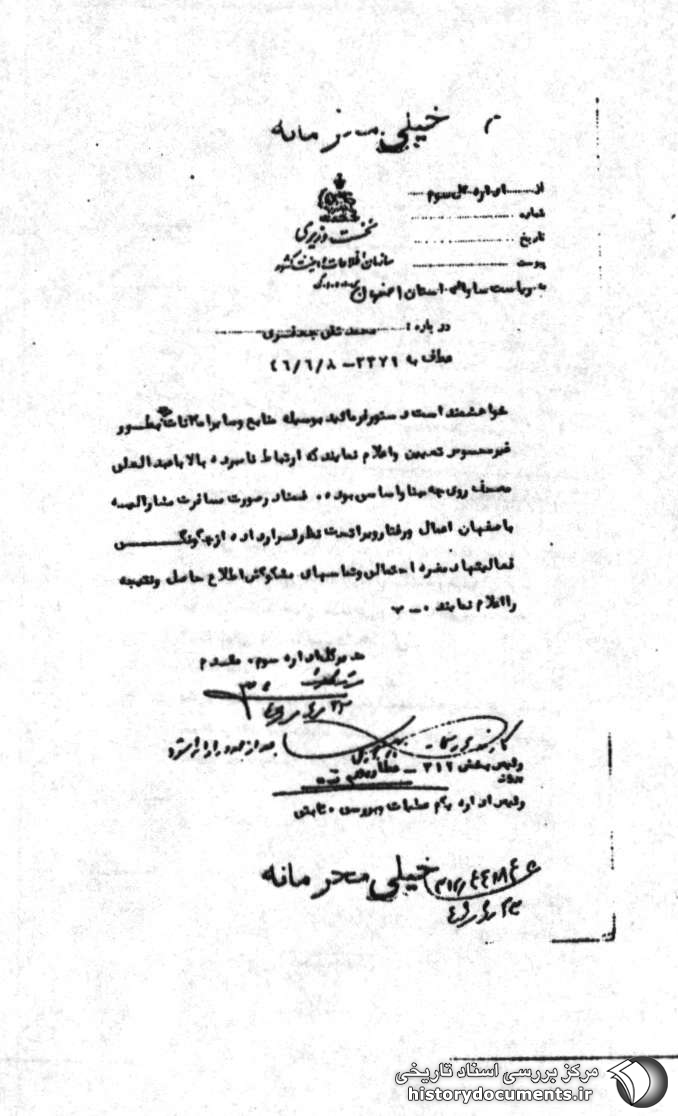 خیلی محرمانه
از اداره کل سوم
شماره
تاریخ
پیوست
نخست وزیری
سازمان اطلاعات و امنیت کشور
به ریاست ساواک استان اصفهان
در باره: محمد تقی جعفری
عطف به ۳۳۷۹ – ۴۶/۶/۸
خواهشمند است دستور فرمائید بوسیله منابع و سایر امکانات بطور
غیرمحسوس تعیین و اعلام نمایند که ارتباط نامبرده بالا با عبدالعلی
مصحف روی چه مبنا و اساسی بوده. ضمناً در صورت مسافرت مشارالیه
باصفهان اعمال و رفتار ویرا تحت نظر قرار داده از چگونگی
فعالیتهای مضره احتمالی و تماسهای مشکوکش اطلاع حاصل و نتیجه
را اعلام نمایند. ب
مدیرکل اداره سوم. مقدم
رئیس بخش ۳۱۲ – عطارپور
رئیس اداره یکم عملیات و بررسی. ثابتی
خیلی محرمانه
مرکز بررسی اسناد تاریخی
historydocuments.ir